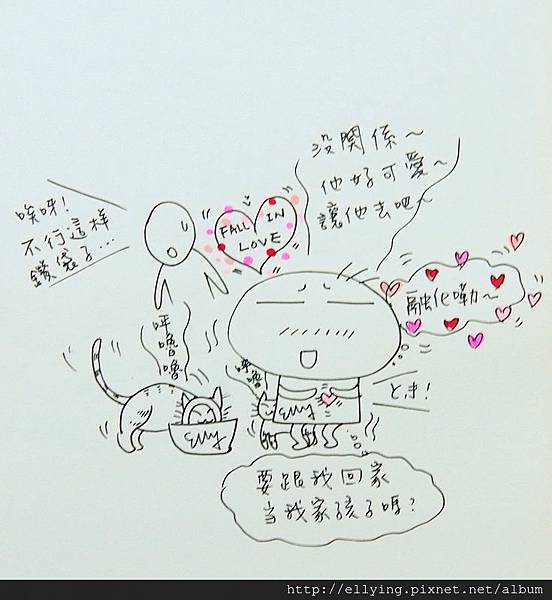 沒關係～
他好可愛～
讓他去吧～
唉呀！
不行這樣
鑽袋子...
FALL IN
LOVE
融化嘞～
呼嚕嚕
呼嚕
Elly
Elly
要跟我回家
當我家孩子嗎？
http://ellying.pixnet.net/album